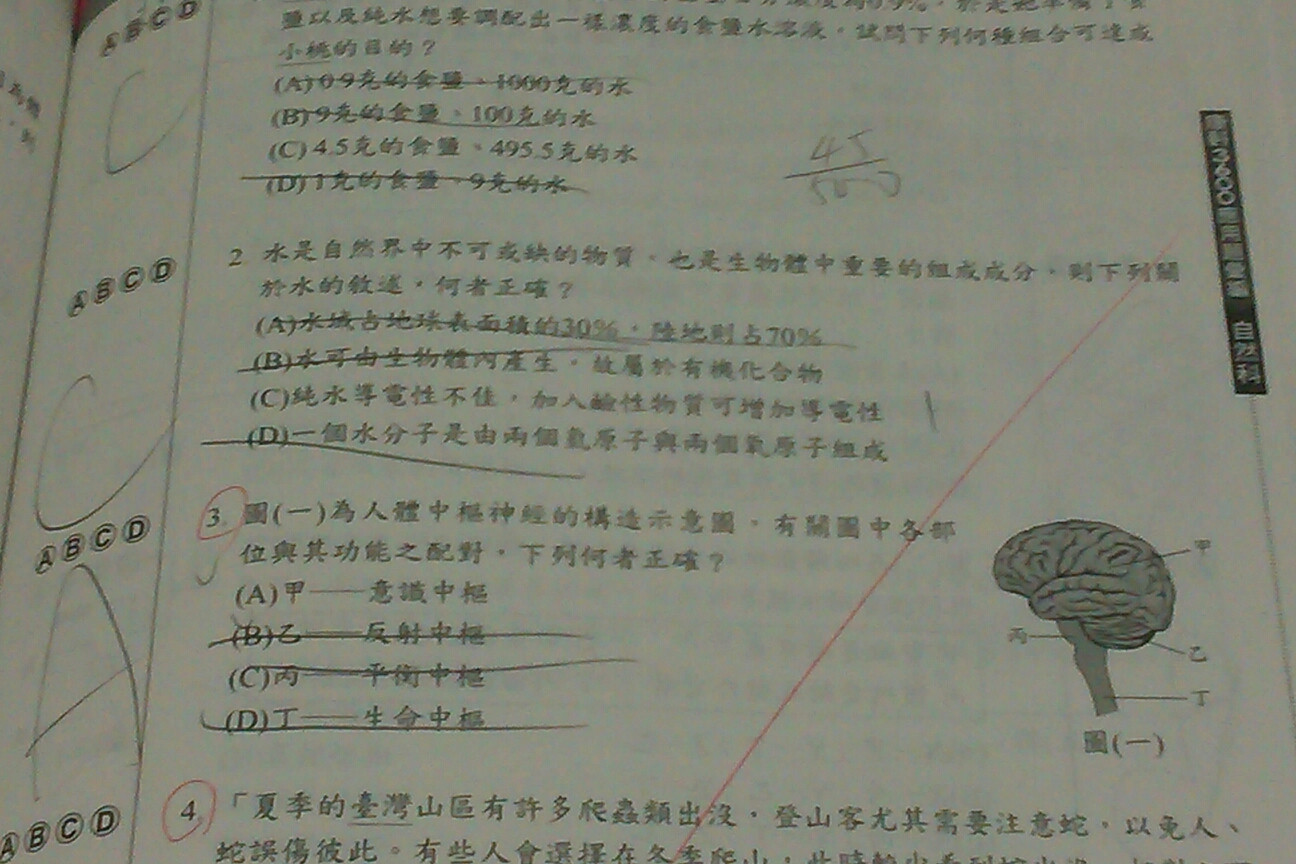 鹽以及純水想要調配出一樣濃度的食鹽水溶液，試問下列何種組合可達成
小桃的目的？
(A) 0.9克的食鹽、1000克的水
(B) 9克的食鹽、100克的水
(C) 4.5克的食鹽、495.5克的水
(D) 1克的食鹽、9克的水
ABCD
C
45
500
2 水是自然界中不可或缺的物質，也是生物體中重要的組成成分，則下列關
於水的敘述，何者正確？
(A)水域占地球表面積的30%，陸地則占70%
(B)水可由生物體內產生，故屬於有機化合物
(C)純水導電性不佳，加入鹼性物質可增加導電性
(D)一個水分子是由兩個氫原子與兩個氧原子組成
ABCD
C
3. 圖(一)為人體中樞神經的構造示意圖，有關圖中各部
位與其功能之配對，下列何者正確？
(A)甲——意識中樞
(B)乙——反射中樞
(C)丙——平衡中樞
(D)丁——生命中樞
ABCD
A
甲
丙
乙
丁
圖(一)
4. 「夏季的臺灣山區有許多爬蟲類出沒，登山客尤其需要注意蛇，以免人、
蛇誤傷彼此。有些人會選擇在冬季爬山，此時較少看到蛇出沒
ABCD
自然科